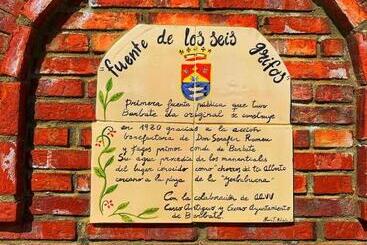 "fuente de los seis grifos"
Primera fuente pública que tuvo
Barbate
en 1920 gracias a la acción
benefactora de Don Serafín Romeu
y Fages primer conde de Barbate
Su agua procedía de los manantiales
del lugar conocido como "chorros del tío Alberto
cercano a la playa de la "Yerbabuena"
Con la colaboración de
Casco Antiguo y Excmo Ayuntamiento
de Barbate